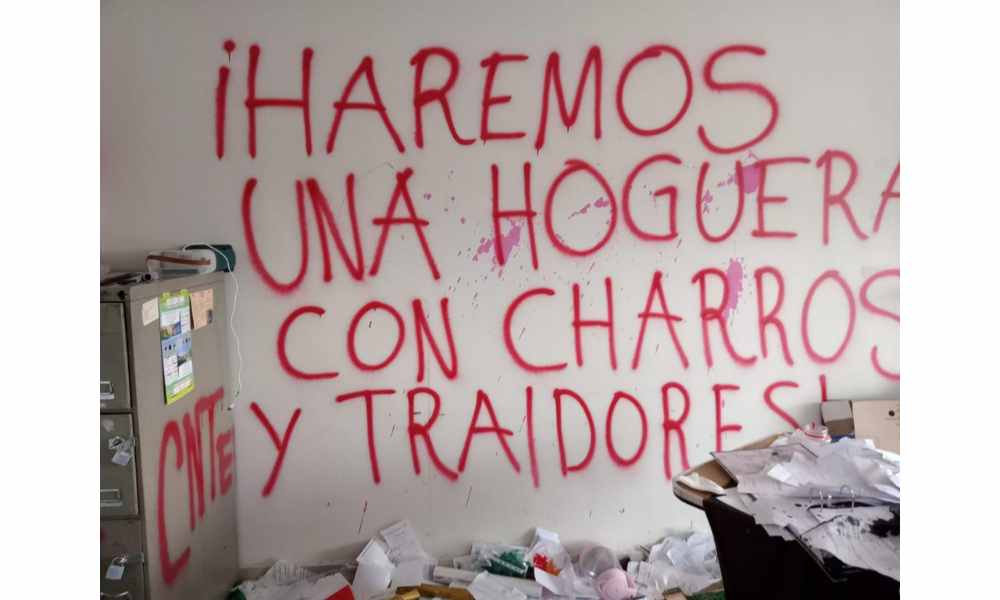 ¡HAREMOS
UNA HOGUERA
CON CHARROS
Y TRAIDORES!
CNTE